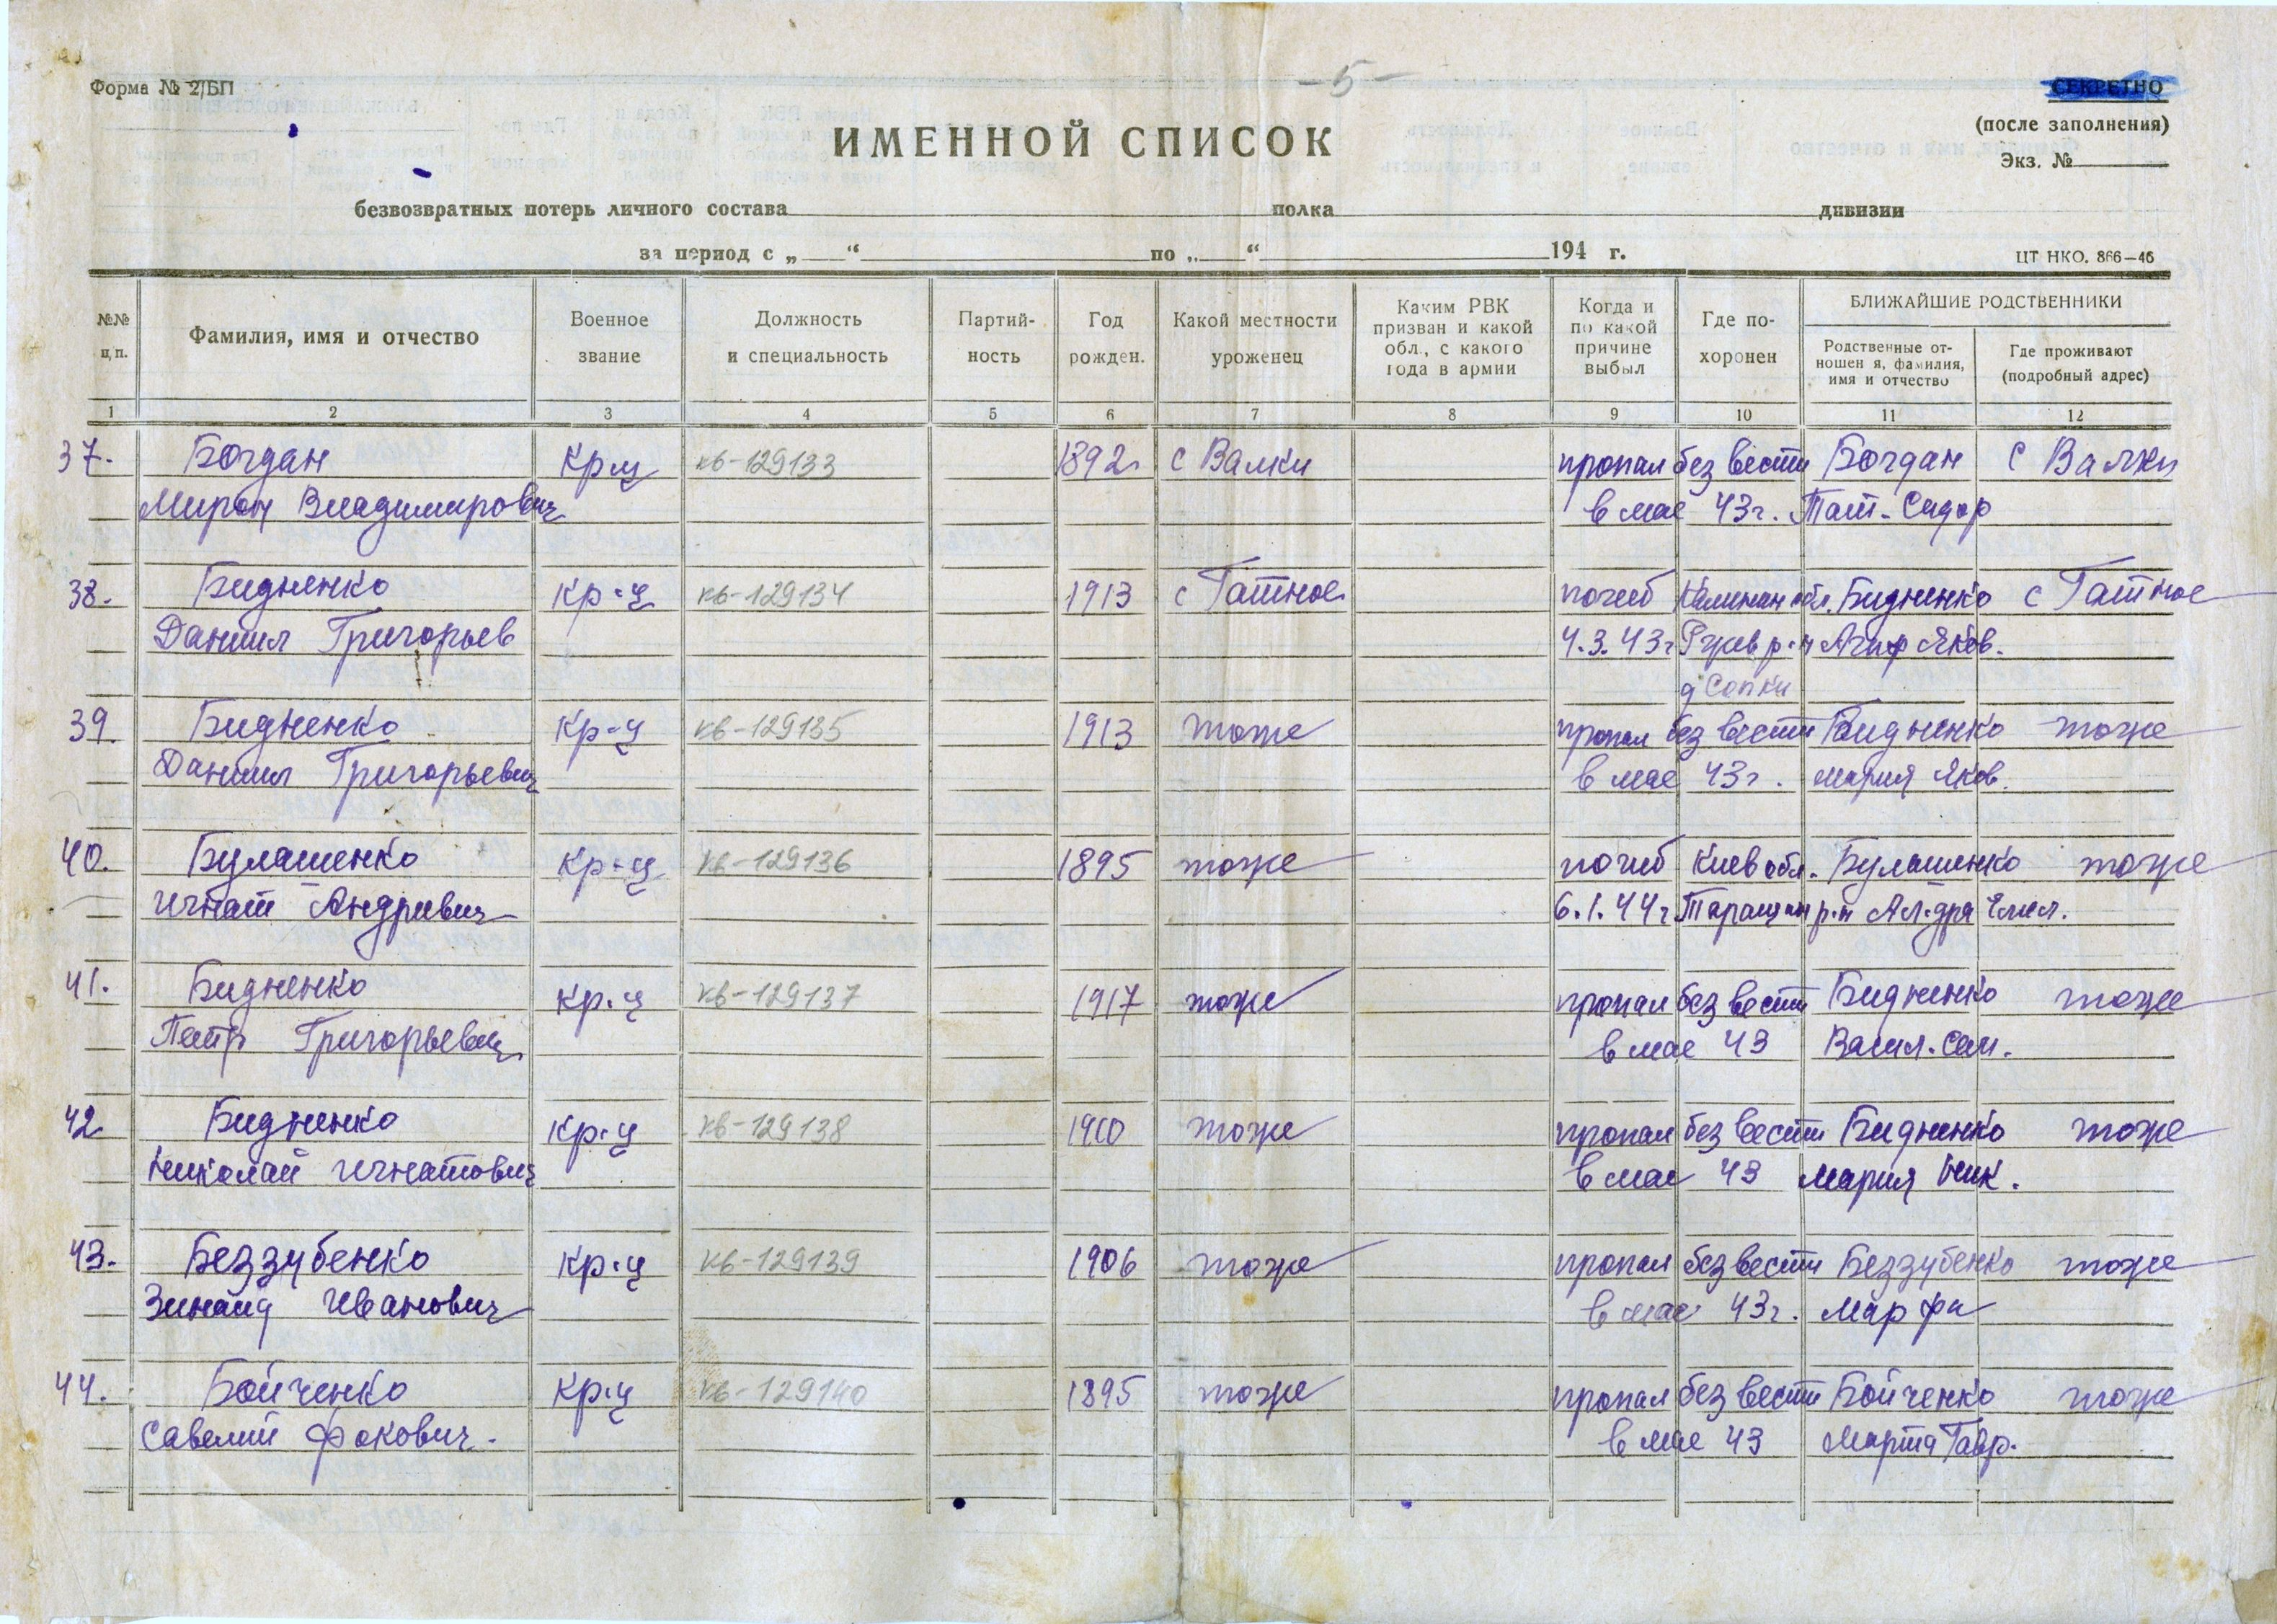 Форма № 2/БП
– 5 –
СЕКРЕТНО
(после заполнения)
Экз. №
ИМЕННОЙ СПИСОК
безвозвратных потерь личного состава полка дивизии
за период с „ “ по „ “ 194 г.
ЦТ НКО. 866—46
№№ п.п.
Фамилия, имя и отчество
Военное звание
Должность и специальность
Партий- ность
Год рожден.
Какой местности уроженец
Каким РВК призван и какой обл., с какого года в армии
Когда и по какой причине выбыл
Где по- хоронен
БЛИЖАЙШИЕ РОДСТВЕННИКИ
Родственные от- ношен я, фамилия, имя и отчество
Где проживают (подробный адрес)
1 2 3 4 5 6 7 8 9 10 11 12
37. Богдан Кр-ц кв-129133 1892 с Валки пропал без вести Богдан с Валки
Мирон Владимирович в мае 43г. Тат. Сидор
38. Бидненко Кр-ц кв-129134 1913 с Гатное погиб Калинин обл. Бидненко с Гатное
Даниил Григорьев 4.3.43г Ржев р-н Агаф Яков.
д Сопки
39. Бидненко Кр-ц кв-129135 1913 тоже пропал без вести Бидненко тоже
Даниил Григорьевич в мае 43г. Мария Яков.
40. Булашенко Кр-ц кв-129136 1895 тоже погиб Киев обл. Булашенко тоже
Игнат Андривич 6.1.44г Таращан р-н Ал-дра Емел.
41. Бидненко Кр-ц кв-129137 1917 тоже пропал без вести Бидненко тоже
Петр Григорьевич в мае 43 Васил. Сем.
42 Бидненко Кр-ц кв-129138 1910 тоже пропал без вести Бидненко тоже
Николай Игнатович в мае 43 Мария Ник.
43. Беззубенко Кр-ц кв-129139 1906 тоже пропал без вести Беззубенко тоже
Зинаид Иванович в мае 43г. Марфа
44. Бойченко Кр-ц кв-129140 1895 тоже пропал без вести Бойченко тоже
Савелий Фокович. в мае 43 Марта Гавр.